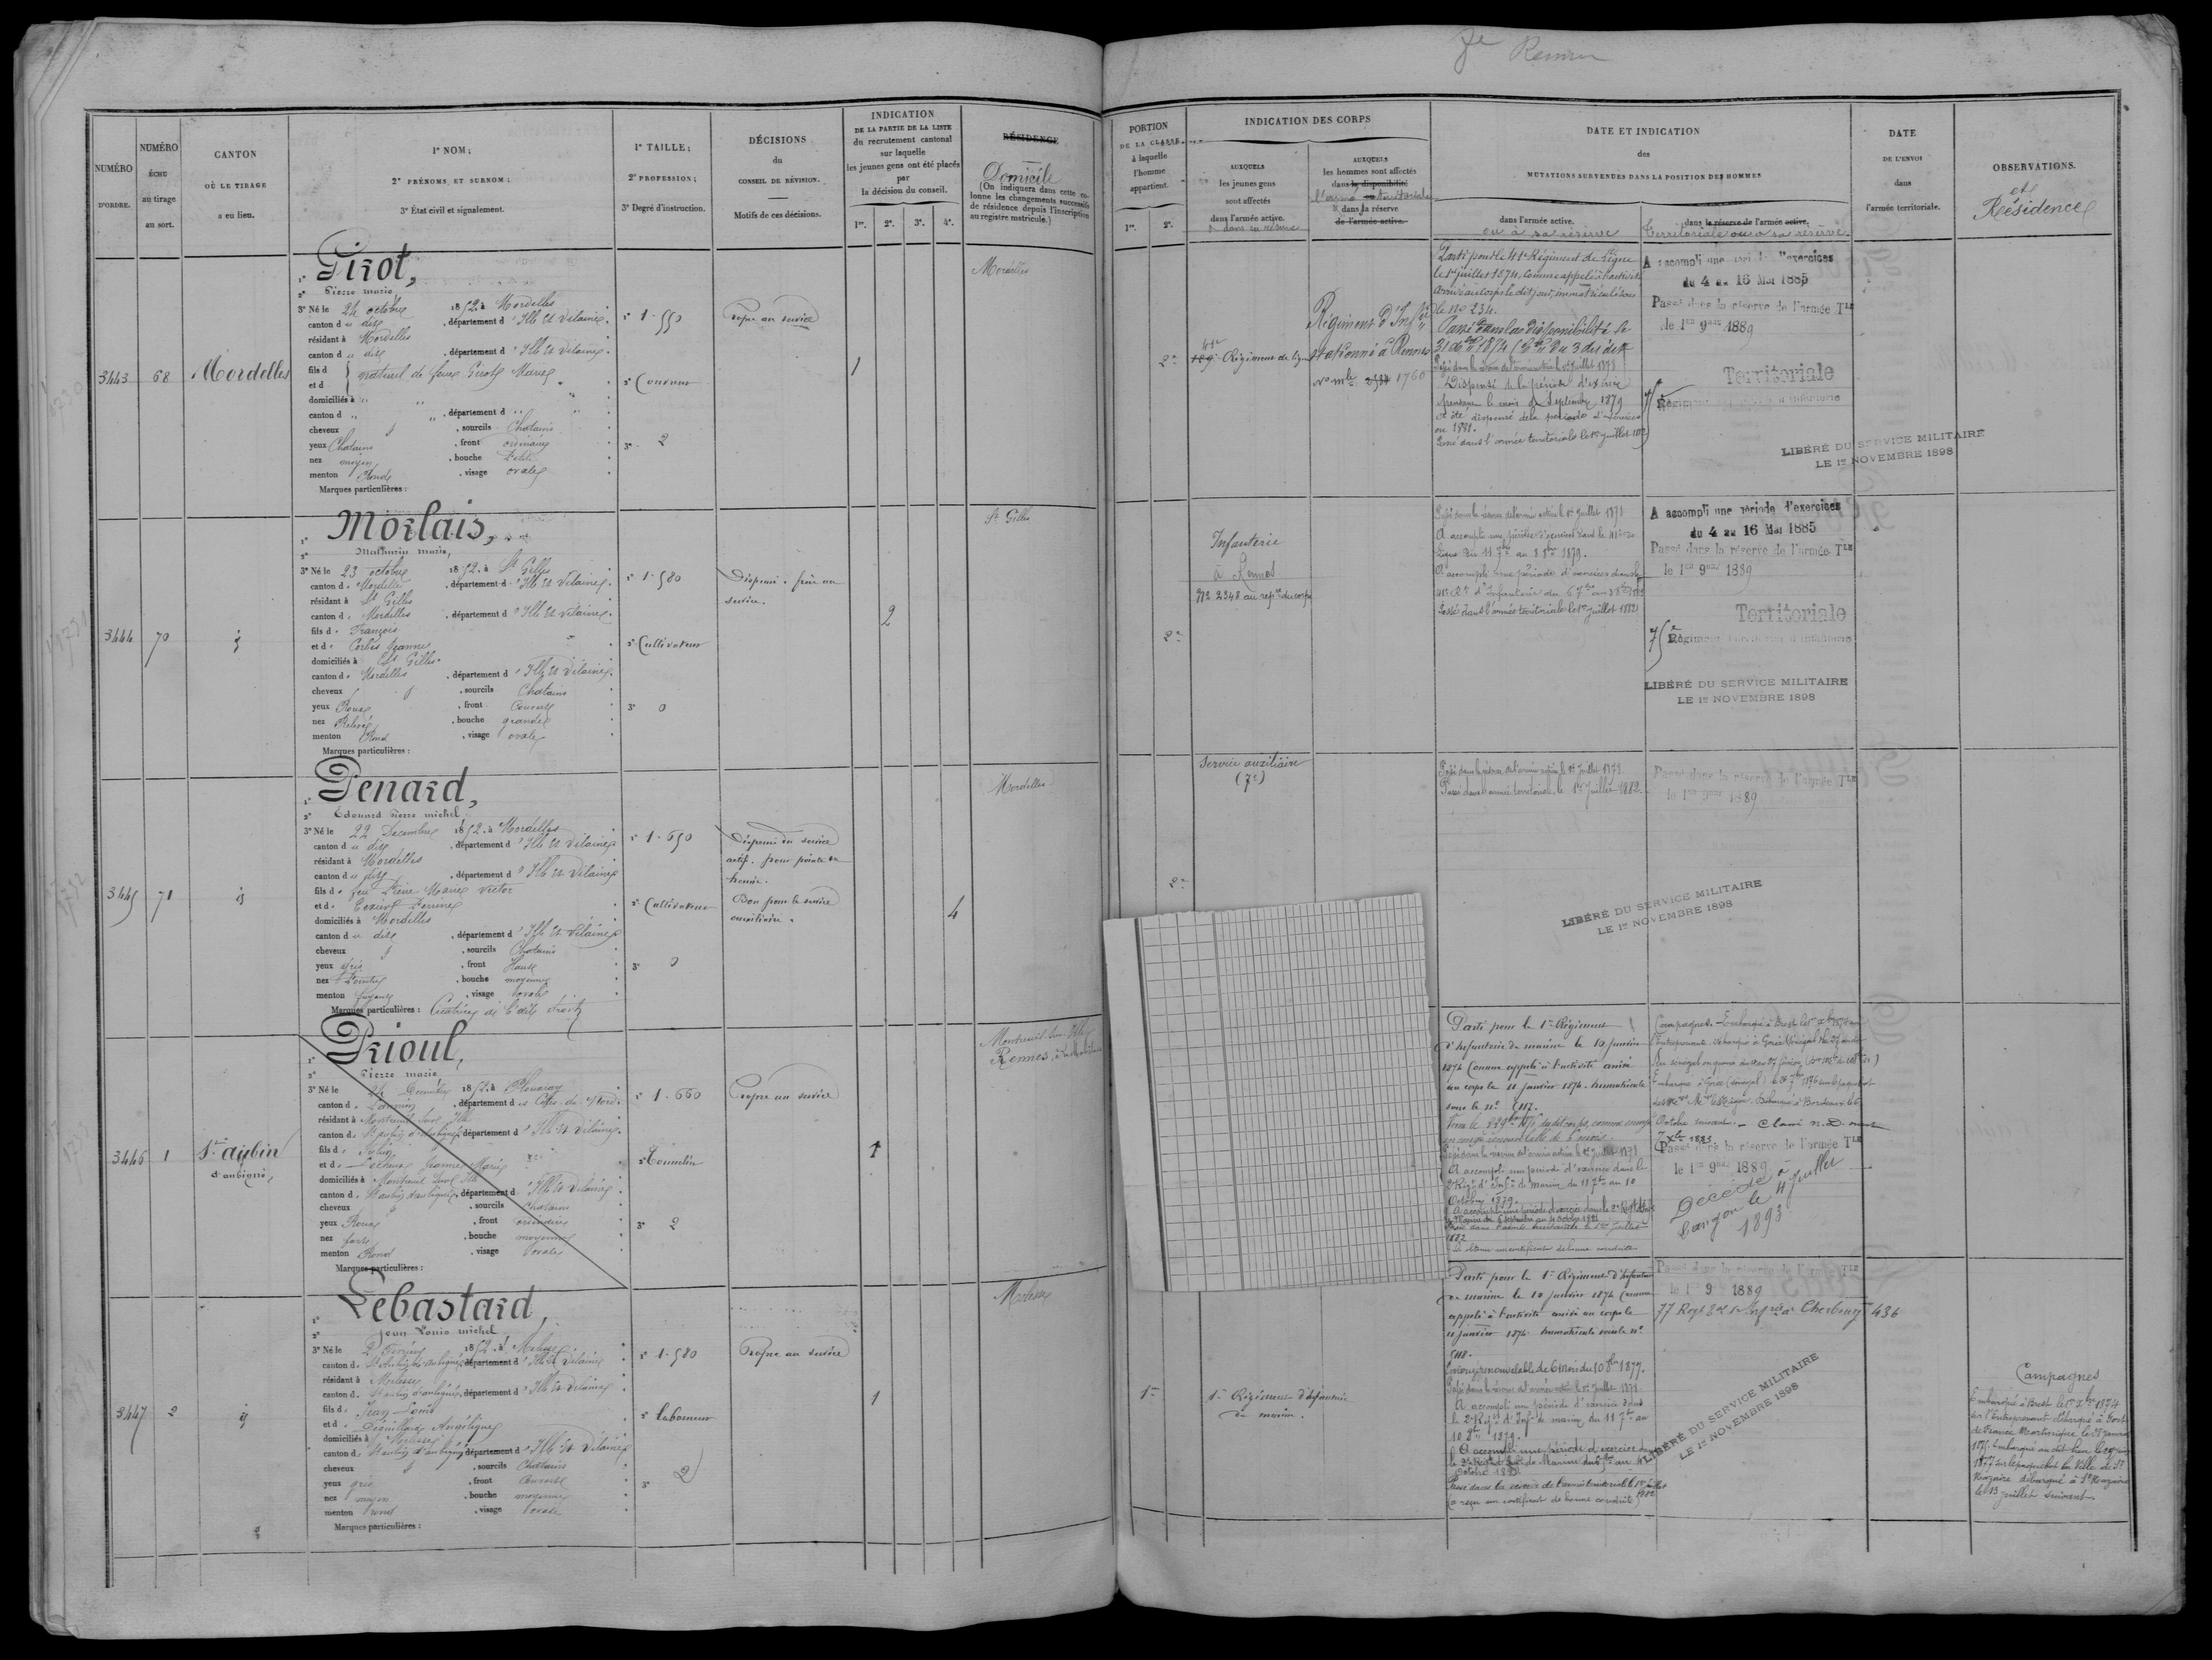 7e Rennes
NUMÉRO
D'ORDRE.
NUMÉRO
ÉCHU
au tirage
au sort.
CANTON
OÙ LE TIRAGE
a eu lieu.
1° NOM;
2° PRÉNOMS ET SURNOM;
3° État civil et signalement.
1° TAILLE;
2° PROFESSION;
3° Degré d'instruction.
DÉCISIONS
du
CONSEIL DE RÉVISION.
Motifs de ces décisions.
INDICATION
DE LA PARTIE DE LA LISTE
du recrutement cantonal
sur laquelle
les jeunes gens ont été placés
par
la décision du conseil.
1re. 2e. 3e. 4e.
RÉSIDENCE
Domicile
(On indiquera dans cette co-
lonne les changements successifs
de résidence depuis l'inscription
au registre matricule.)
PORTION
DE LA CLASSE
à laquelle
l'homme
appartient.
1re. 2e.
INDICATION DES CORPS
AUXQUELS
les jeunes gens
sont affectés
dans l'armée active.
& dans sa réserve
AUXQUELS
les hommes sont affectés
dans la disponibilité
l'armée territoriale
& dans la réserve
de l'armée active.
DATE ET INDICATION
des
MUTATIONS SURVENUES DANS LA POSITION DES HOMMES
dans l'armée active.
ou à sa réserve
dans la réserve de l'armée active.
territoriale ou à sa réserve.
DATE
DE L'ENVOI
dans
l'armée territoriale.
OBSERVATIONS.
et
Résidence
3443 68 Mordelles
1° Pirot,
2° Pierre marie
3° Né le 24 octobre 1852. à Mordelles
canton d u dit , département d' Ille et Vilaine.
résidant à Mordelles
canton d u dit , département d' Ille et Vilaine.
fils d
et d naturel de feue Marie
domiciliés à "
canton d " , département d "
cheveux , sourcils Chatains
yeux Chatains , front ordinaire
nez moyen , bouche Petite
menton Rond , visage ovale
Marques particulières :
1° 1.550
2° Couvreur
3° 2
Propre au service
1
Mordelles
2e
41e Régiment de ligne
Régiment d'Infrie
stationné à Rennes
No mle 1760
Parti pour le 41e Régiment de Ligne
le 1er juillet 1874, comme appelé à l'activité
arrivé au corps le dit jour, immatriculé sous
le no 234.
Passé dans la disponibilité le
Passé dans la réserve de l'armée active le 1er Juillet 1878
Dispensé de la période d'exercice
pendant le mois de Septembre 1879
A été dispensé de la période d'exercice
en 1881.
Passé dans l'armée territoriale le 1er juillet 1882
A accompli une période d'exercices
du 4 au 16 Mai 1885
Passé dans la réserve de l'armée Tle
le 1er 9bre 1889
Territoriale
75e Régiment territorial d'infanterie
LIBÉRÉ DU SERVICE MILITAIRE
LE 1er NOVEMBRE 1898
3444 70 id
1° Morlais,
2° Mathurin marie,
3° Né le 23 octobre 1852. à St Gilles
canton d e Mordelles , département d' Ille et Vilaine.
résidant à St Gilles
canton d e Mordelles , département d' Ille et Vilaine.
fils d e François
et d e Corbes Jeanne
domiciliés à St Gilles.
canton d e Mordelles , département d' Ille et Vilaine.
cheveux , sourcils Chatains
yeux Roux , front Couvert
nez Relevé , bouche grande
menton Rond , visage ovale
Marques particulières :
1° 1.580
2° Cultivateur
3° 0
Dispensé. frère au
service.
2
St Gilles
2e
Infanterie
à Rennes
No 2348 au repre du corps
Passé dans la réserve de l'armée active le 1er Juillet 1878
A accompli une période d'exercices dans le 41e de
ligne du 11 7bre au 8 8bre 1879.
A accompli une période d'exercices dans le
41e Rt d'Infanterie du 6 7bre au
Passé dans l'armée territoriale le 1er Juillet 1882
A accompli une période d'exercices
du 4 au 16 Mai 1885
Passé dans la réserve de l'armée Tle
le 1er 9bre 1889
Territoriale
75e Régiment territorial d'infanterie
LIBÉRÉ DU SERVICE MILITAIRE
LE 1er NOVEMBRE 1898
3445 71 id
1° Penard,
2° Edouard Pierre michel
3° Né le 22 Décembre 1852. à Mordelles
canton d u dit , département d' Ille et Vilaine
résidant à Mordelles
canton d u dit , département d' Ille et Vilaine
fils d e feu Pierre Marie Victor
et d e Perrine
domiciliés à Mordelles
canton d u dit , département d' Ille et Vilaine
cheveux , sourcils Chatains
yeux gris , front Haut
nez Pointu , bouche moyenne
menton fuyant , visage ovale
Marques particulières : Cicatrice de l'œil droit
1° 1.650
2° Cultivateur
3° 0
Dispensé du service
actif. pour pointe de
hernie.
Bon pour le service
auxiliaire.
4
Mordelles
2e
Service auxiliaire
(7e)
Passé dans la réserve de l'armée active le 1er Juillet 1878.
Passé dans l'armée territoriale, le 1er Juillet 1882.
Passé dans la réserve de l'armée Tle
le 1er 9bre 1889
LIBÉRÉ DU SERVICE MILITAIRE
LE 1er NOVEMBRE 1898
3446 1 St aubin
d'aubigné,
1° Prioul,
2° Pierre marie
3° Né le 24 1852. à Plouaray
canton d e Lannion , département d es Côtes-du-Nord
résidant à Montreuil sur Ille
canton d e St aubin d'aubigné, département d' Ille et Vilaine.
fils d e Julien
et d e Jeanne Marie
domiciliés à Montreuil sur Ille
canton d e St aubin d'aubigné, département d' Ille et Vilaine
cheveux , sourcils Chatains
yeux Roux , front ordinaire
nez fort , bouche moyenne
menton Rond , visage ovale
Marques particulières :
1° 1.660
2° Tonnelier
3° 2
Propre au service
1
Montreuil sur Ille
Rennes,
Parti pour le 1er Régiment
d'Infanterie de marine le 10 janvier
1874 Comme appelé à l'activité arrivé
au corps le 11 janvier 1874. Immatriculé
sous le no 5117.
en congé renouvelable de 6 mois.
Passé dans la réserve de l'armée active le 1er Juillet 1878
A accompli une période d'exercice dans le
2e Régt d'Infrie de marine du 11 7bre au 10
Octobre 1879.
A accompli une période d'exercice dans le 2e Régt d'Infrie
Passé dans l'armée territoriale le 1er Juillet
1882
A obtenu un certificat de bonne conduite
Campagnes. Embarqué à Brest le
l'Entreprenant. Débarqué à Gorée (Sénégal)
Octobre suivant. - Classé n. D.
7 Xbre 1883
Passé dans la réserve de l'armée Tle
le 1er 9bre 1889
Décédé à
Langon le 11 juillet
1893
3447 2 id
1° Lebastard,
2° Jean Louis michel
3° Né le 2 Février 1852. à Melesse
canton d e St Aubin d'aubigné, département d' Ille et Vilaine
résidant à Melesse
canton d e St aubin d'aubigné, département d' Ille et Vilaine
fils d e Jean Louis
et d e Angélique
domiciliés à Melesse
canton d e St aubin d'aubigné, département d' Ille et Vilaine
cheveux , sourcils Chatains
yeux gris , front Couvert
nez moyen , bouche moyenne
menton rond , visage ovale
Marques particulières :
1° 1.580
2° laboureur
3° 2
Propre au service
1
Melesse
1re
1er Régiment d'Infanterie
de marine.
Parti pour le 1er Régiment d'Infanterie
de marine le 10 janvier 1874 Comme
appelé à l'activité arrivé au corps le
11 janvier 1874. Immatriculé sous le no
5118.
Congé renouvelable de 6 mois du 10 8bre 1877.
Passé dans la réserve de l'armée active le 1er Juillet 1878
A accompli une période d'exercice dans
le 2e Régt d'Infrie de marine du 11 7bre au
10 8bre 1879.
A accompli une période d'exercice dans
le 2e Régt d'Infrie de Marine du
Octobre 1881
Passé dans la réserve de l'armée territoriale le 1er Juillet
1882
a reçu un certificat de bonne conduite
Passé dans la réserve de l'armée Tle
le 1er 9bre 1889
77 Regt Cherbourg 436
LIBÉRÉ DU SERVICE MILITAIRE
LE 1er NOVEMBRE 1898
Campagnes
Embarqué à Brest le 1er Xbre 1874
sur l'Entreprenant débarqué à Fort
de France Martinique le 28 janvier
1875. Embarqué au dit lieu le
1877 sur le paquebot la Ville de St
Nazaire débarqué à St Nazaire
le 13 juillet suivant.